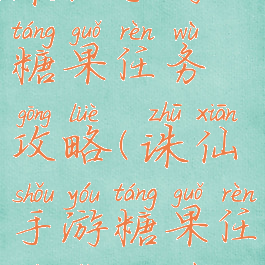 táng guǒ rèn wù
糖果任务
gōng lüè zhū xiān
攻略(诛仙
shǒu yóu táng guǒ rèn
手游糖果任